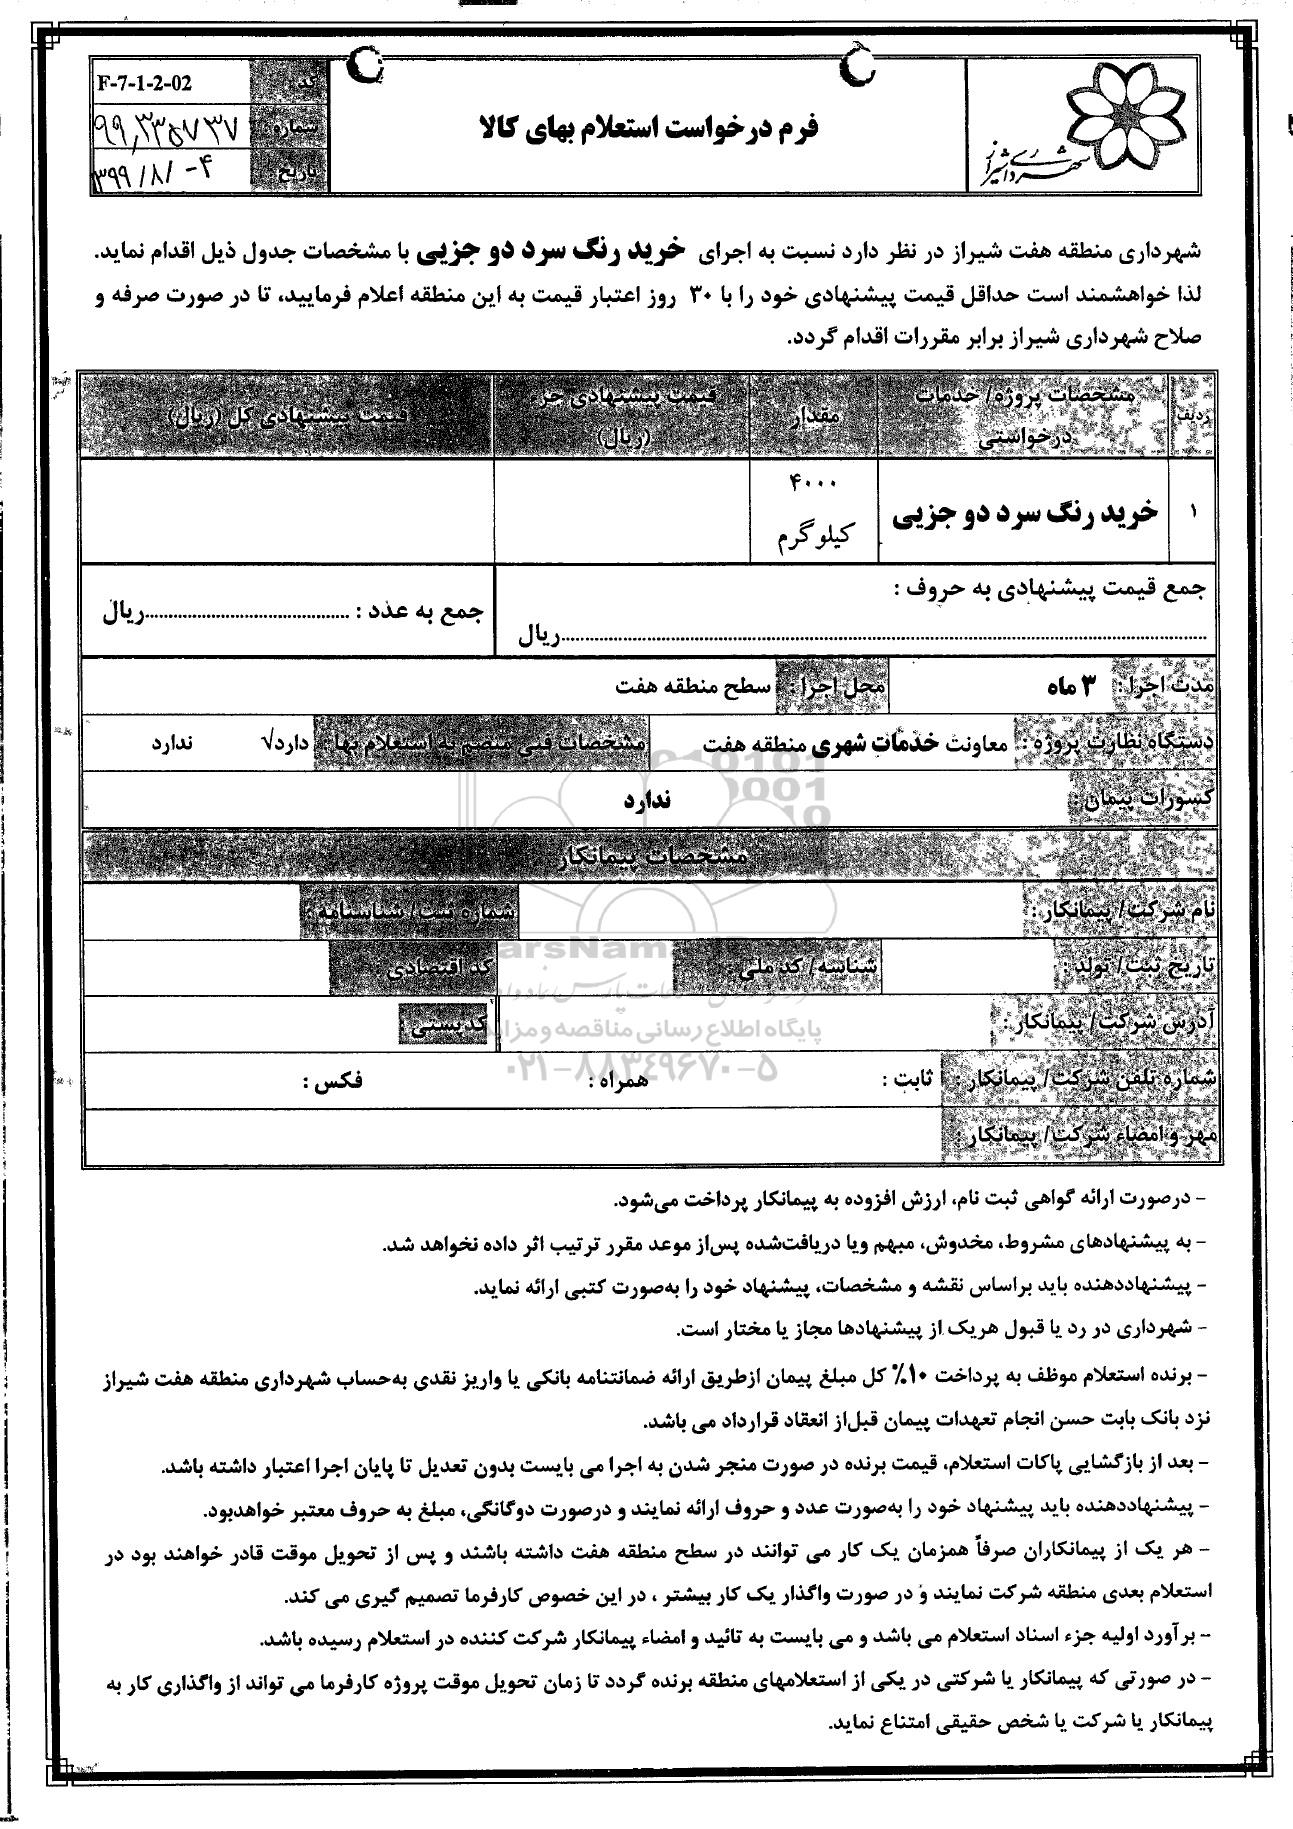 کد F-7-1-2-02
شماره: ۹۹٫۳۳۵۷۳۷
تاریخ ۱۳۹۹/۸/-۴
فرم درخواست استعلام بهای کالا
شهرداری شیراز
شهرداری منطقه هفت شیراز در نظر دارد نسبت به اجرای خرید رنگ سرد دو جزیی با مشخصات جدول ذیل اقدام نماید.
لذا خواهشمند است حداقل قیمت پیشنهادی خود را با ۳۰ روز اعتبار قیمت به این منطقه اعلام فرمایید، تا در صورت صرفه و
صلاح شهرداری شیراز برابر مقررات اقدام گردد.
ردیف
مشخصات پروژه/ خدمات
درخواستی
مقدار
قیمت پیشنهادی جز
(ریال)
قیمت پیشنهادی کل (ریال)
۱
خرید رنگ سرد دو جزیی
۴۰۰۰
کیلوگرم
جمع قیمت پیشنهادی به حروف :
ریال
جمع به عدد : ریال
مدت اجرا: ۳ ماه محل اجرا : سطح منطقه هفت
دستگاه نظارت پروژه : معاونت خدمات شهری منطقه هفت مشخصات فنی منضم به استعلام بها : دارد√ ندارد
کسورات پیمان : ندارد
مشخصات پیمانکار
نام شرکت/ پیمانکار : شماره ثبت/ شناسنامه :
تاریخ ثبت/ تولد : شناسه/ کد ملی کد اقتصادی :
آدرس شرکت/ پیمانکار : کدپستی :
پایگاه اطلاع رسانی مناقصه و مزایده
۰۲۱-۸۸۳۴۹۶۷۰-۵
شماره تلفن شرکت/ پیمانکار : ثابت : همراه : فکس :
مهر و امضاء شرکت/ پیمانکار :
- درصورت ارائه گواهی ثبت نام، ارزش افزوده به پیمانکار پرداخت می‌شود.
- به پیشنهادهای مشروط، مخدوش، مبهم ویا دریافت‌شده پس‌از موعد مقرر ترتیب اثر داده نخواهد شد.
- پیشنهاددهنده باید براساس نقشه و مشخصات، پیشنهاد خود را به‌صورت کتبی ارائه نماید.
- شهرداری در رد یا قبول هریک از پیشنهادها مجاز یا مختار است.
- برنده استعلام موظف به پرداخت ۱۰% کل مبلغ پیمان ازطریق ارائه ضمانتنامه بانکی یا واریز نقدی به‌حساب شهرداری منطقه هفت شیراز
نزد بانک بابت حسن انجام تعهدات پیمان قبل‌از انعقاد قرارداد می باشد.
- بعد از بازگشایی پاکات استعلام، قیمت برنده در صورت منجر شدن به اجرا می بایست بدون تعدیل تا پایان اجرا اعتبار داشته باشد.
- پیشنهاددهنده باید پیشنهاد خود را به‌صورت عدد و حروف ارائه نمایند و درصورت دوگانگی، مبلغ به حروف معتبر خواهدبود.
- هر یک از پیمانکاران صرفاً همزمان یک کار می توانند در سطح منطقه هفت داشته باشند و پس از تحویل موقت قادر خواهند بود در
استعلام بعدی منطقه شرکت نمایند و در صورت واگذار یک کار بیشتر ، در این خصوص کارفرما تصمیم گیری می کند.
- برآورد اولیه جزء اسناد استعلام می باشد و می بایست به تائید و امضاء پیمانکار شرکت کننده در استعلام رسیده باشد.
- در صورتی که پیمانکار یا شرکتی در یکی از استعلامهای منطقه برنده گردد تا زمان تحویل موقت پروژه کارفرما می تواند از واگذاری کار به
پیمانکار یا شرکت یا شخص حقیقی امتناع نماید.